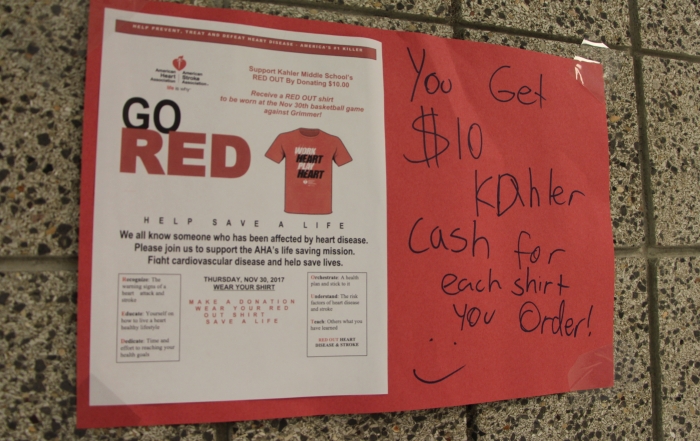 HELP PREVENT, TREAT AND DEFEAT HEART DISEASE - AMERICA'S #1 KILLER
American Heart Association
American Stroke Association
life is why
Support Kahler Middle School's
RED OUT By Donating $10.00
Receive a RED OUT shirt
to be worn at the Nov 30th basketball game
against Grimmer!
GO
RED
WORK
HEART
PLAY
HEART
HELP SAVE A LIFE
We all know someone who has been affected by heart disease.
Please join us to support the AHA's life saving mission.
Fight cardiovascular disease and help save lives.
Recognize: The
warning signs of a
heart attack and
stroke
Educate: Yourself on
how to live a heart
healthy lifestyle
Dedicate: Time and
effort to reaching your
health goals
THURSDAY, NOV 30, 2017
WEAR YOUR SHIRT
MAKE A DONATION
WEAR YOUR RED
OUT SHIRT
SAVE A LIFE
Orchestrate: A health
plan and stick to it
Understand: The risk
factors of heart disease
and stroke
Teach: Others what you
have learned
RED OUT HEART
DISEASE & STROKE
You Get
$10
KDahler
Cash for
each shirt
You Order!